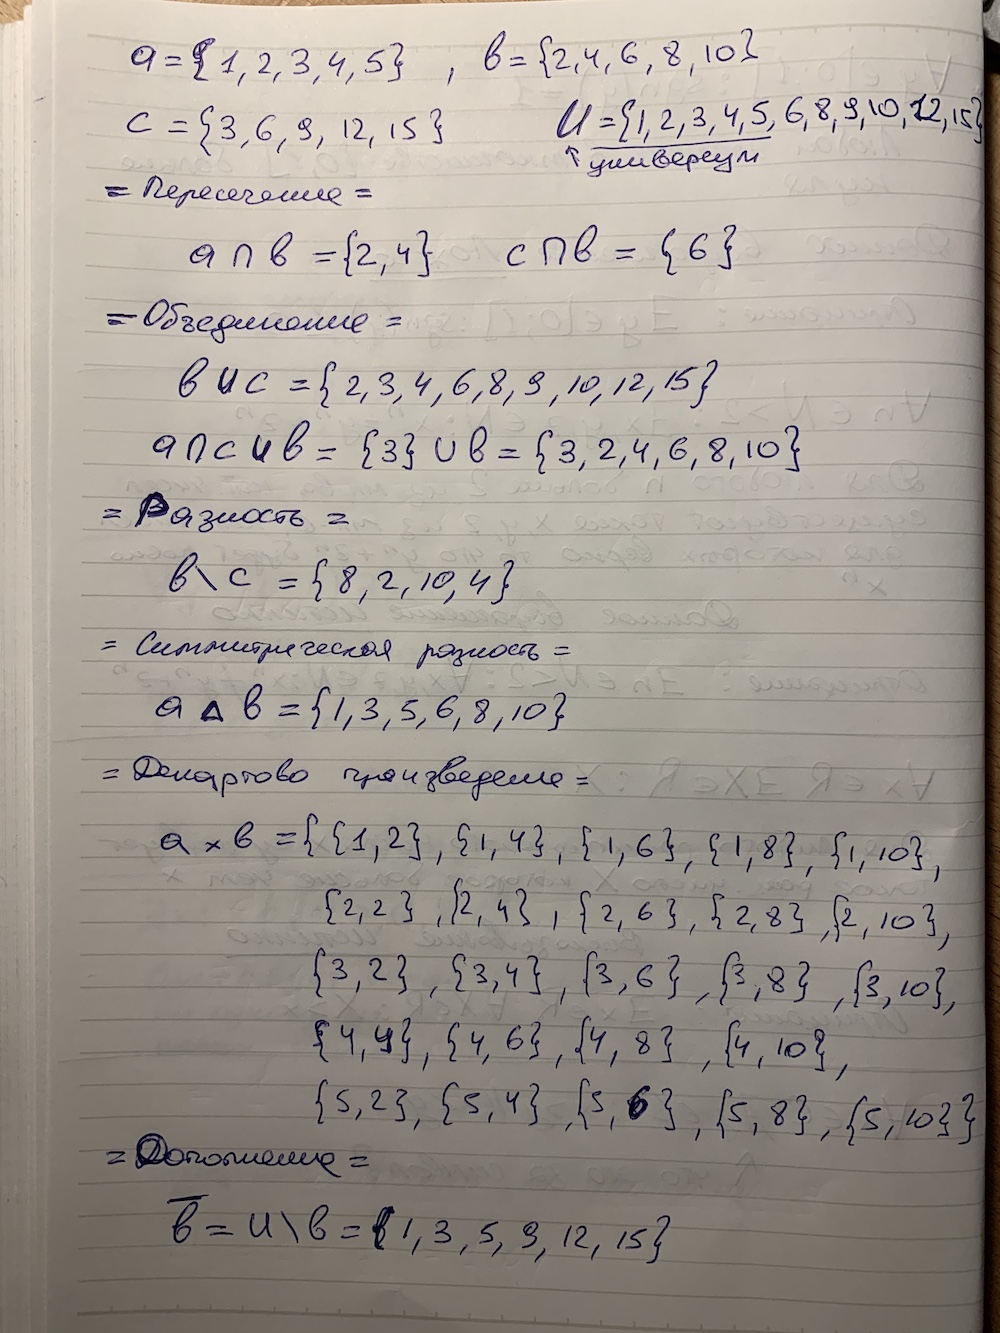 a = {1, 2, 3, 4, 5} , b = {2, 4, 6, 8, 10}
c = {3, 6, 9, 12, 15} U = {1, 2, 3, 4, 5, 6, 8, 9, 10, 12, 15}
↑ универсум
= Пересечение =
a ∩ b = {2, 4} c ∩ b = {6}
= Объединение =
b ∪ c = {2, 3, 4, 6, 8, 9, 10, 12, 15}
a ∩ c ∪ b = {3} ∪ b = {3, 2, 4, 6, 8, 10}
= Разность =
b \ c = {8, 2, 10, 4}
= Симметрическая разность =
a Δ b = {1, 3, 5, 6, 8, 10}
= Декартово произведение =
a × b = {{1, 2}, {1, 4}, {1, 6}, {1, 8}, {1, 10},
{2, 2}, {2, 4}, {2, 6}, {2, 8}, {2, 10},
{3, 2}, {3, 4}, {3, 6}, {3, 8}, {3, 10},
{4, 4}, {4, 6}, {4, 8}, {4, 10},
{5, 2}, {5, 4}, {5, 6}, {5, 8}, {5, 10}}
= Дополнение =
b̅ = U \ b = {1, 3, 5, 9, 12, 15}